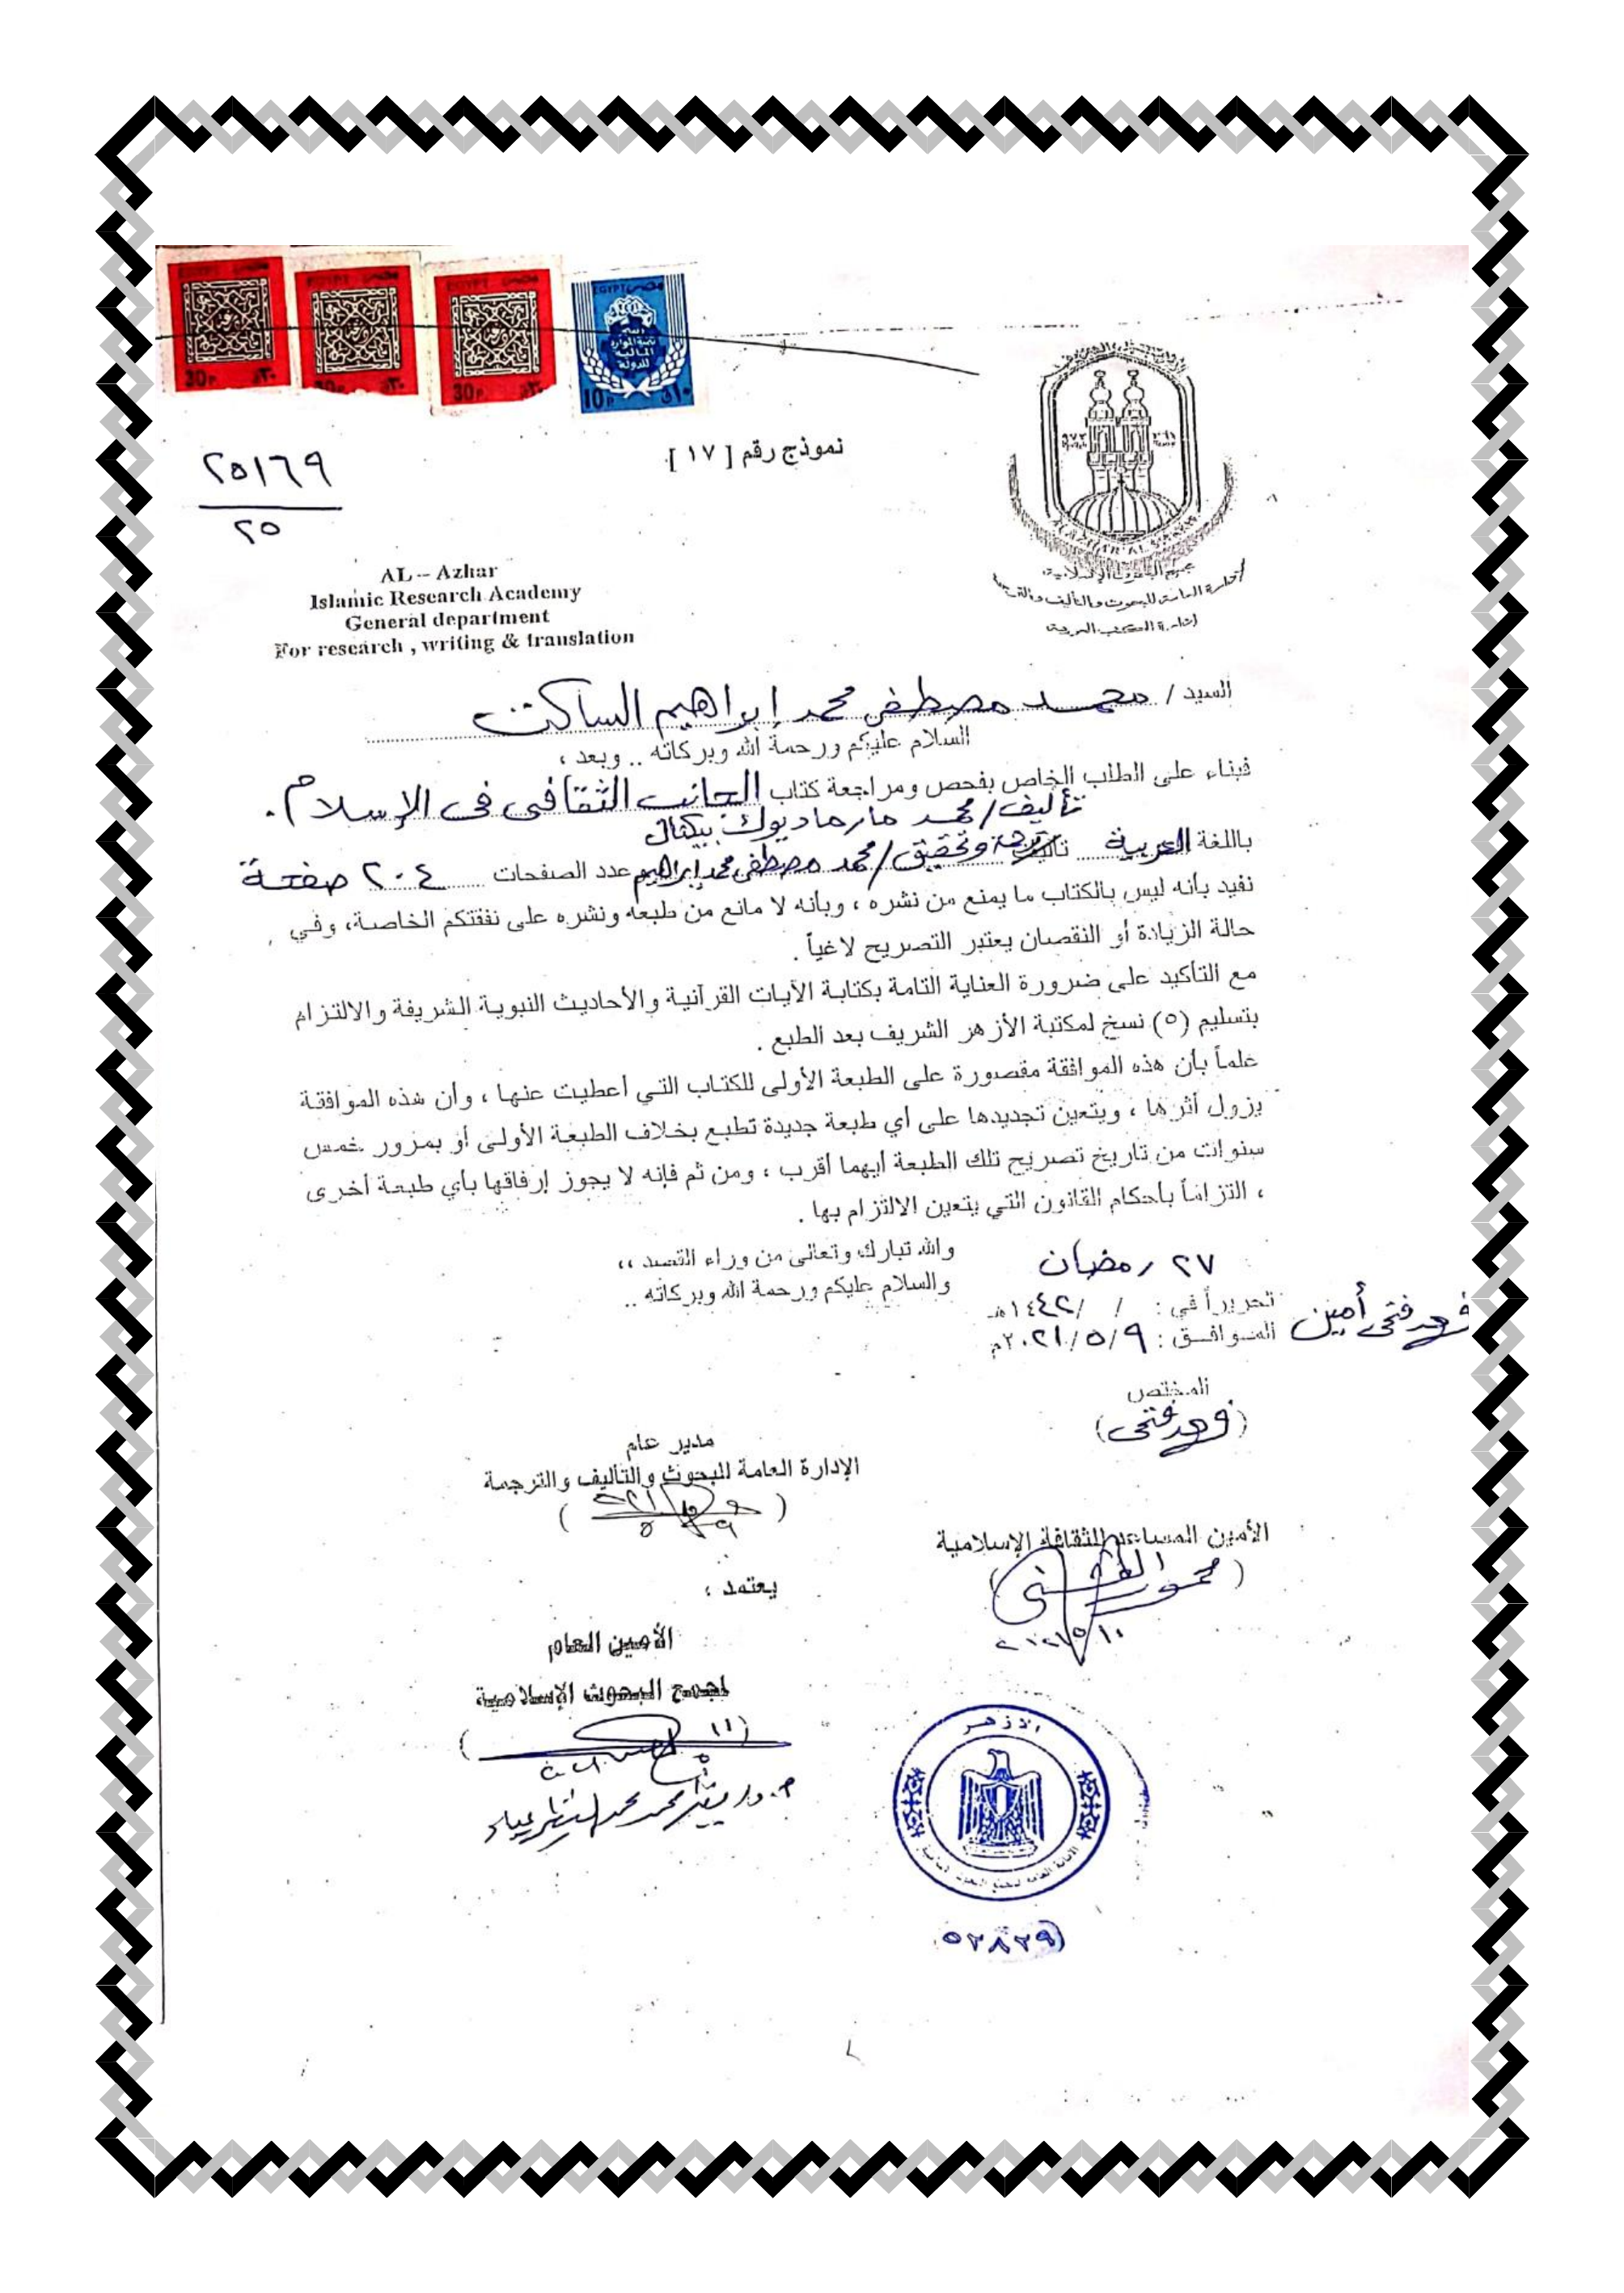 EGYPT مصر
30P
EGYPT مصر
30P
EGYPT مصر
30P
EGYPT مصر
تنمية الموارد
المالية
للدولة
10P
نموذج رقم [ ١٧ ]
٢٥١٦٩
٢٥
AL – Azhar
Islamic Research Academy
General department
For research , writing & translation
مجمع البحوث الإسلامية
الإدارة العامة للبحوث والتأليف والترجمة
السيد / محمد مصطفى محمد إبراهيم الساكت
السلام عليكم ورحمة الله وبركاته .. وبعد ،
فبناء على الطلب الخاص بفحص ومراجعة كتاب الجانب الثقافى فى الإسلام .
تأليف / محمد مارمادیوك بیكتال
باللغة العربية ترجمة وتحقيق / محمد مصطفى محمد إبراهيم عدد الصفحات ٢٠٤ صفحة
نفيد بأنه ليس بالكتاب ما يمنع من نشره ، وبأنه لا مانع من طبعه ونشره على نفقتكم الخاصة، وفي
حالة الزيادة أو النقصان يعتبر التصريح لاغياً .
مع التأكيد على ضرورة العناية التامة بكتابة الآيات القرآنية والأحاديث النبوية الشريفة والالتزام
بتسليم (٥) نسخ لمكتبة الأزهر الشريف بعد الطبع .
علماً بأن هذه الموافقة مقصورة على الطبعة الأولى للكتاب التي أعطيت عنها ، وأن هذه الموافقة
يزول أثرها ، ويتعين تجديدها على أي طبعة جديدة تطبع بخلاف الطبعة الأولى أو بمرور خمس
سنوات من تاريخ تصريح تلك الطبعة أيهما أقرب ، ومن ثم فإنه لا يجوز إرفاقها بأي طبعة أخرى
، التزاماً بأحكام القانون التي يتعين الالتزام بها .
والله تبارك وتعالى من وراء القصد ،،
والسلام عليكم ورحمة الله وبركاته ..
٢٧ رمضان
تحريراً في : / / ١٤٤٢هـ
الموافق : ٢٠٢١/٥/٩م
فتحى أمين
المختص
فتحى
مدير عام
الإدارة العامة للبحوث والتأليف والترجمة
الأمين المساعد للثقافة الإسلامية
٢٠٢١/٥/١٠
يعتمد ،
الأمين العام
لمجمع البحوث الإسلامية
الازهر
٥٢٨٢٩